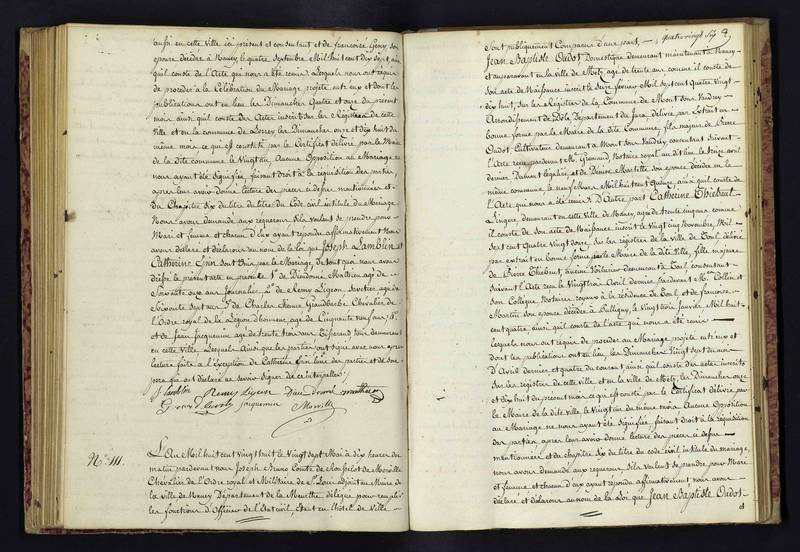 aussi en cette ville ici présent et consentant et de françoise Gény son
épouse décédée à Nancy le quatre Septembre Mil huit cent dix sept, ainsi
qu'il conste de l'acte qui nous a été remis. Lesquels nous ont requis
de procéder à la Célébration du Mariage projeté entr'eux et dont les
publications ont eu lieu les Dimanches Quatre et onze du présent
mois ainsi qu'il conste des actes inscrits sur les Registres de cette
ville et en la commune de les Dimanches onze et dix huit du
même mois ce qui est constaté par le Certificat délivré par le Maire
de la dite commune le vingt un, Aucune Opposition au Mariage ne
nous ayant été signifiée, faisant droit à la réquisition des parties,
après leur avoir donné lecture des pièces ci dessus mentionnées et
du Chapitre six du titre du Code civil intitulé du Mariage
Nous avons demandé aux requérans s'ils veulent se prendre pour
Mari et femme et chacun d'eux ayant répondu affirmativement Nous
avons déclaré et déclarons au nom de la loi que Joseph Lamblin et
Catherine sont unis par le Mariage, de tout quoi nous avons
dressé le présent acte en présence 1° de Dieudonné Mathieu âgé de
Soixante ans Journalier 2° de Remy Ligeon âgé de
Soixante sept ans 3° de Charles étienne Grandbarbe Chevalier de
l'Ordre royal de la Légion d'honneur, âgé de Cinquante neuf ans, 4°
et de Jean Jacquemin âgé de trente trois ans tous demeurant
en cette ville Lesquels Ainsi que les parties ont signé avec nous après
lecture faite à l'exception de Catherine l'une des parties et de son
père qui ont déclaré ne savoir signer de ce interpellés
J Lamblin Remy Ligeon Dieudonné Mathieu
Jacquemin Morville
N° 111.
L'an Mil huit cent Vingt huit le Vingt Sept Mai à dix heures du
matin pardevant nous Joseph Bruno Comte de Morville
Chevalier de l'Ordre royal et Militaire de St Louis adjoint au Maire de
la ville de Nancy Département de la Meurthe délégué pour remplir
les fonctions d'Officier de l'état civil, étant en l'hôtel de Ville
quatre vingt six
Sont publiquement Comparus d'une part,
Jean Baptiste Oudot Domestique demeurant maintenant à Nancy
et auparavant en la ville de Metz, âgé de trente ans, comme il conste de
son acte de Naissance inscrit le Mil sept cent Quatre Vingt
dix huit, sur les Registres de la Commune de Mont sous Vaudrey
Arrondissement de Dôle, Département du Jura, délivré par Extrait en
bonne forme par le Maire de la dite Commune, fils majeur de Pierre
Oudot Cultivateur demeurant à Mont sous Vaudrey consentant suivant
l'acte reçu pardevant M. Notaire royal au dit lieu le treize avril
dernier dûment légalisé, et de Denise son épouse décédée en la
même commune, le neuf Mars Mil huit cent Quinze, ainsi qu'il conste de
l'acte qui nous a été remis D'Autre part Catherine Thiébaut
Lingère, demeurant en cette ville de Nancy, âgée de trente cinq ans comme
il conste de son acte de Naissance inscrit le Vingt cinq Novembre, Mil
Sept cent Quatre Vingt douze, sur les registres de la ville de Toul, délivré
par extrait en bonne forme par le Maire de la dite Ville, fille majeure
de Pierre Thiébaut, ancien Voiturier demeurant à Toul, consentant
suivant l'Acte reçu le Vingt trois Avril dernier pardevant M. Collin et
son Collègue, Notaires royaux à la résidence de Toul, et de françoise
Martin son épouse décédée à Pulligny, le Vingt trois janvier, Mil huit
cent quatre, ainsi qu'il conste de l'acte qui nous a été remis
Lesquels nous ont requis de procéder au Mariage projeté entr'eux et
dont les publications ont eu lieu, les Dimanches Vingt sept du mois
d'Avril dernier et quatre du courant ainsi qu'il conste des actes inscrits
sur les registres de cette ville et en la ville de Metz les Dimanches onze
et dix huit du présent mois, ce qui est constaté par le Certificat délivré par
le Maire de la dite ville, le Vingt un du même mois Aucune Opposition
au Mariage ne nous ayant été signifiée, faisant droit à la réquisition
des parties, après leur avoir donné lecture des pièces ci dessus
mentionnées et du chapitre six du titre du code civil intitulé du mariage,
nous avons demandé aux requérans, s'ils veulent se prendre pour Mari
et femme et chacun d'eux ayant répondu affirmativement nous avons
déclaré et déclarons au nom de la Loi que Jean Baptiste Oudot
et